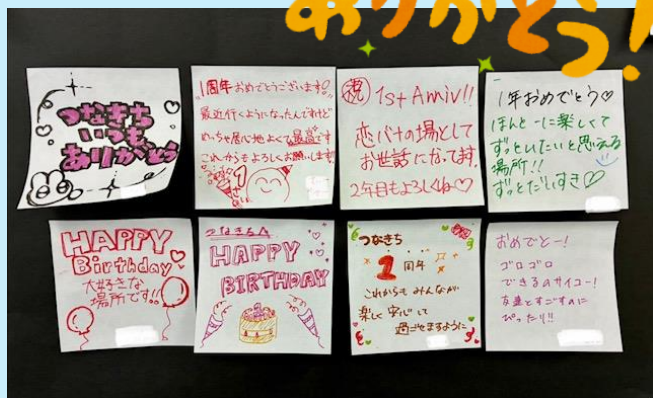 ありがとう!
つなきち
いつも
ありがとう
1周年おめでとうございます!
最近行くようになったんですけど
めっちゃ居心地よくて最高です
これからもよろしくお願いします!
祝 1st Anniv!!
恋バナの場として
お世話になってます。
2年目もよろしくね♡
1年おめでとう♡
ほんとーに楽しくて
ずっといたいと思える
場所!!
ずっとだいすき♡
HAPPY
Birthday
大好きな
場所です!!
つなきち
HAPPY
BIRTHDAY
つなきち
1周年
これからもみんなが
楽しく安心して
過ごせますように
おめでとー!
ゴロゴロ
できるのサイコー!
友達とすごすのに
ぴったり!!